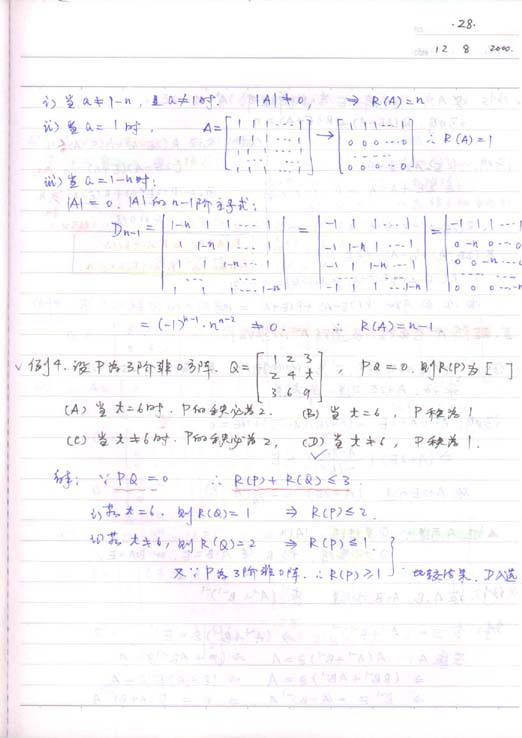 ·28·
12 8 2000.
i) 当 a≠1-n, 且 a≠1时. |A|≠0, ⇒ R(A)=n
ii) 当 a=1时, A=[1 1 1 ⋯ 1; 1 1 1 ⋯ 1; 1 1 1 ⋯ 1; ⋯; 1 1 1 ⋯ 1] → [1 1 1 ⋯ 1; 0 0 0 ⋯ 0; ⋯; 0 0 0 ⋯ 0] ∴ R(A)=1
iii) 当 a=1-n时:
|A|=0. |A|的 n-1阶主子式:
Dn-1 = |1-n 1 1 ⋯ 1; 1 1-n 1 ⋯ 1; 1 1 1-n ⋯ 1; ⋯; 1 1 1 ⋯ 1-n| = |-1 1 1 ⋯ 1; -1 1-n 1 ⋯ 1; -1 1 1-n ⋯ 1; ⋯; -1 1 1 ⋯ 1-n| = |-1 1 1 ⋯ 1; 0 -n 0 ⋯ 0; 0 0 -n ⋯ 0; ⋯; 0 0 0 ⋯ -n|
= (-1)^{n-1}·n^{n-2} ≠ 0. ∴ R(A)=n-1
√ 例4. 设P为3阶非0方阵. Q=[1 2 3; 2 4 t; 3 6 9], PQ=0. 则R(P)为 [ ]
(A) 当 t=6时. P的秩必为2. (B) 当 t=6, P秩为1
(C) 当 t≠6时. P的秩必为2, (D) 当 t≠6, P秩为1.
解: ∵ PQ=0 ∴ R(P)+R(Q)≤3.
i) 若 t=6. 则R(Q)=1 ⇒ R(P)≤2.
ii) 若 t≠6, 则R(Q)=2 ⇒ R(P)≤1.
又∵ P为3阶非0阵. ∴ R(P)≥1 } 比较结果. D入选